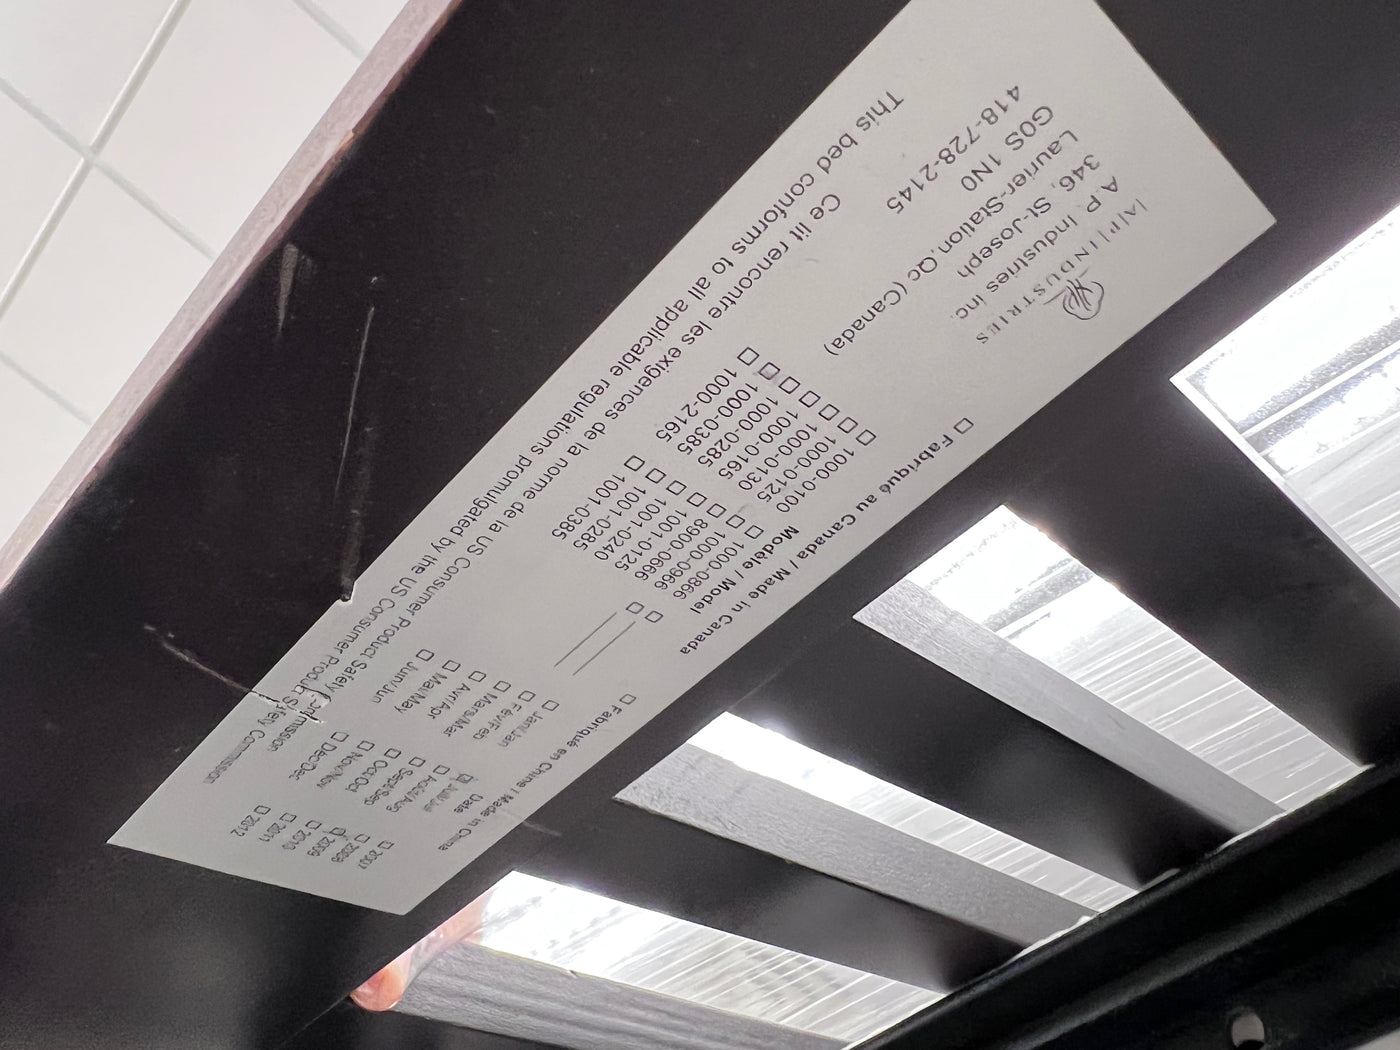 |A|P| INDUSTRIES
A.P. Industries inc.
346, St-Joseph
Laurier-Station, Qc (Canada)
G0S 1N0
418-728-2145
☐ Fabriqué au Canada / Made in Canada
☐ Fabriqué en Chine / Made in China
Modèle / Model
☐ 1000-0100
☐ 1000-0125
☐ 1000-0130
☐ 1000-0165
☐ 1000-0285
☐ 1000-0385
☐ 1000-2165
☐ 1000-0866
☐ 1000-0966
☐ 8900-0666
☐ 1001-0125
☐ 1001-0240
☐ 1001-0285
☐ 1001-0385
☐
☐
Date
☐ Jan/Jan
☐ Fév/Feb
☐ Mars/Mar
☐ Avr/Apr
☐ Mai/May
☐ Juin/Jun
☐ Juil/Jul
☐ Août/Aug
☐ Sept/Sep
☐ Oct/Oct
☐ Nov/Nov
☐ Déc/Dec
☐ 2007
☐ 2008
☐ 2009
☐ 2010
☐ 2011
☐ 2012
Ce lit rencontre les exigences de la norme de la US Consumer Product Safety Commission
This bed conforms to all applicable regulations promulgated by the US Consumer Product Safety Commission